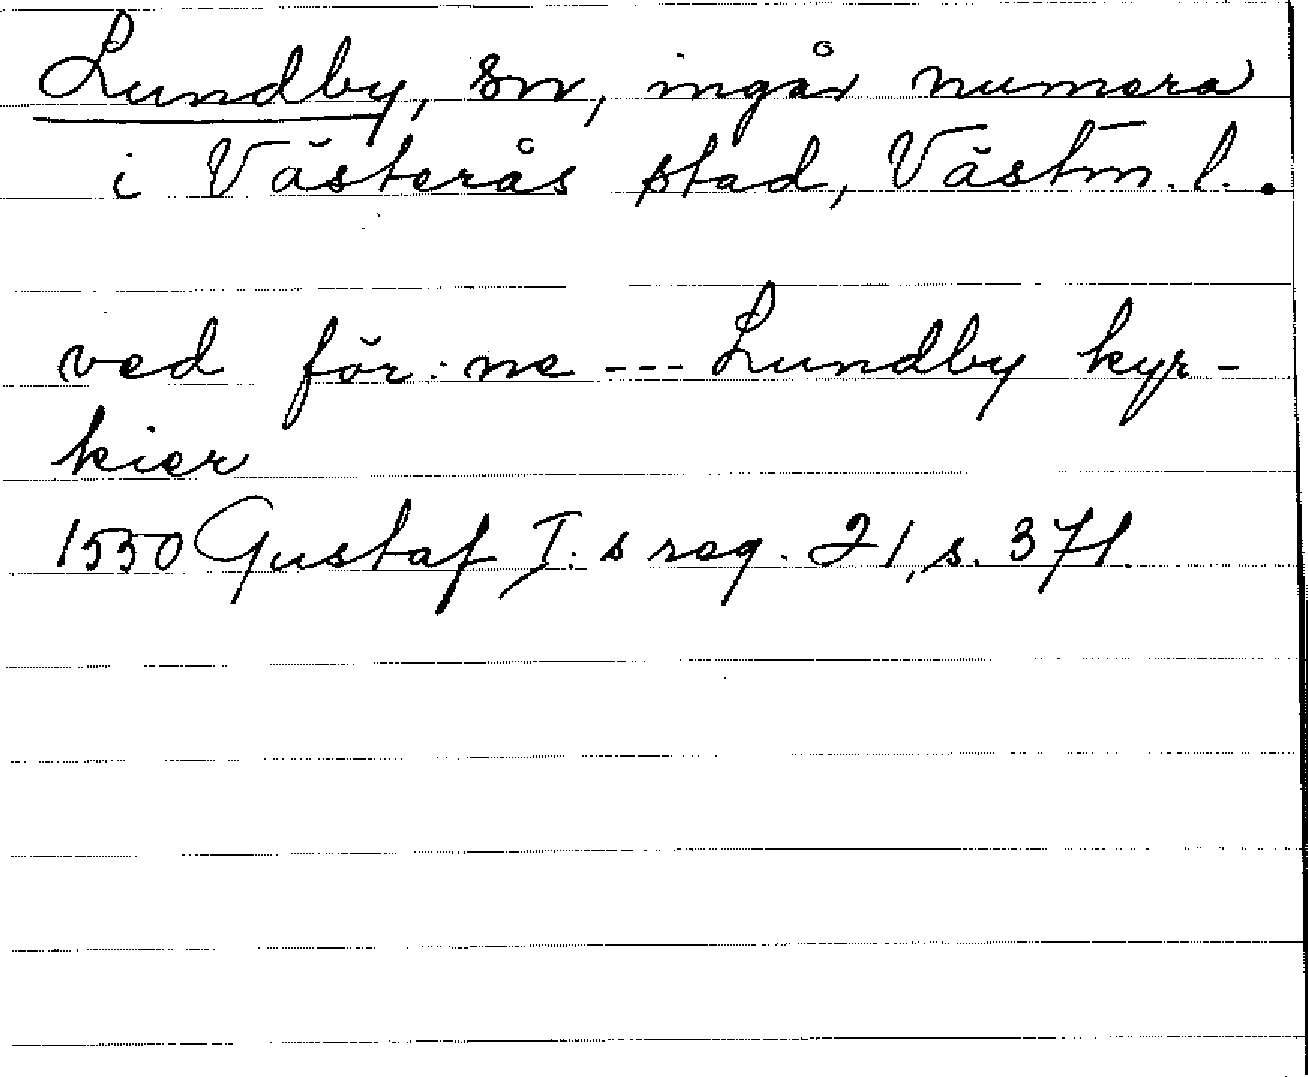 Lundby, sn, ingår numera
i Västerås stad, Västm. l..
ved för:ne --- Lundby kyr-
kier
1550 Gustaf I:s reg. 21, s. 371.